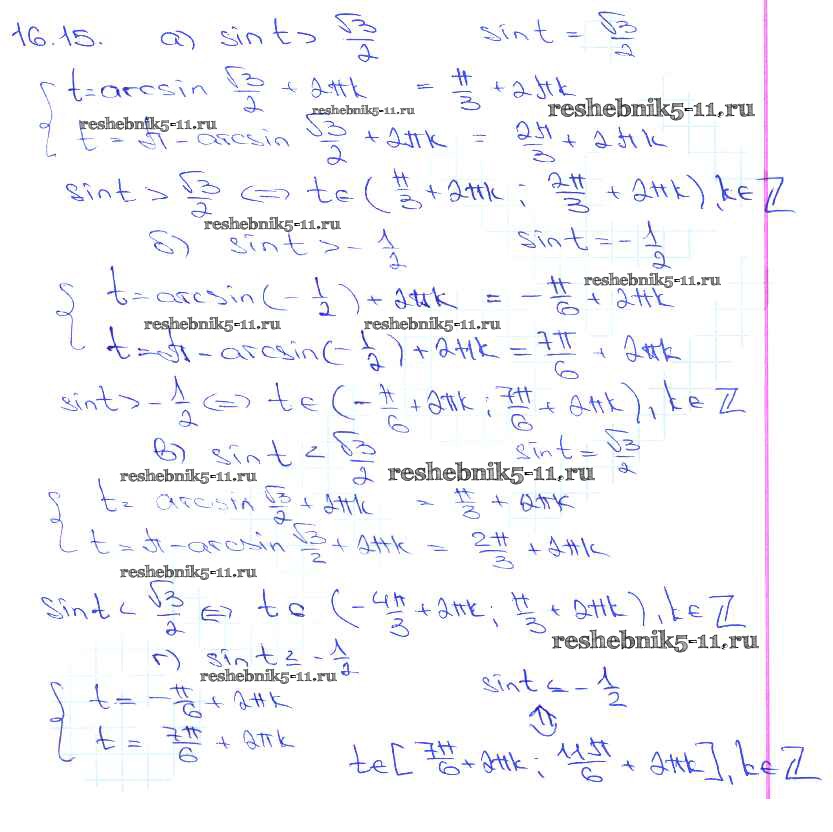 16.15. а) sin t > √3/2 sin t = √3/2
{ t = arcsin √3/2 + 2πk = π/3 + 2πk
reshebnik5-11.ru reshebnik5-11.ru reshebnik5-11.ru
t = π - arcsin √3/2 + 2πk = 2π/3 + 2πk
sin t > √3/2 <=> t ∈ (π/3 + 2πk ; 2π/3 + 2πk), k ∈ ℤ
reshebnik5-11.ru
б) sin t > -1/2 sin t = -1/2
reshebnik5-11.ru
{ t = arcsin(-1/2) + 2πk = -π/6 + 2πk
reshebnik5-11.ru reshebnik5-11.ru
t = π - arcsin(-1/2) + 2πk = 7π/6 + 2πk
sin t > -1/2 <=> t ∈ (-π/6 + 2πk ; 7π/6 + 2πk), k ∈ ℤ
в) sin t < √3/2 sin t = √3/2
reshebnik5-11.ru reshebnik5-11.ru
{ t = arcsin √3/2 + 2πk = π/3 + 2πk
t = π - arcsin √3/2 + 2πk = 2π/3 + 2πk
reshebnik5-11.ru
sin t < √3/2 <=> t ∈ (-4π/3 + 2πk ; π/3 + 2πk), k ∈ ℤ
reshebnik5-11.ru
г) sin t ≤ -1/2
reshebnik5-11.ru
{ t = -π/6 + 2πk sin t ≤ -1/2
⇕
t = 7π/6 + 2πk t ∈ [7π/6 + 2πk ; 11π/6 + 2πk], k ∈ ℤ